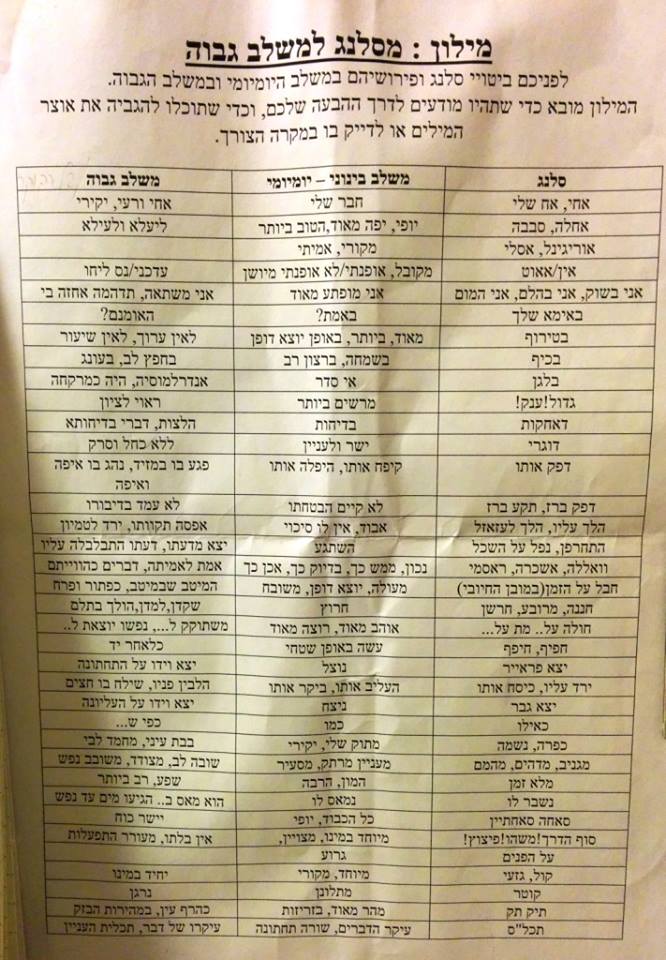 מילון : מסלנג למשלב גבוה
לפניכם ביטויי סלנג ופירושיהם במשלב היומיומי ובמשלב הגבוה.
המילון מובא כדי שתהיו מודעים לדרך ההבעה שלכם, וכדי שתוכלו להגביה את אוצר
המילים או לדייק בו במקרה הצורך.
סלנג משלב בינוני – יומיומי משלב גבוה
אחי, אח שלי חבר שלי אחי ורעי, יקירי
אחלה, סבבה יופי, יפה מאוד,הטוב ביותר ליעלא ולעילא
אוריגינל, אסלי מקורי, אמיתי
אין/אאוט מקובל, אופנתי/לא אופנתי מיושן עדכני/נס ליחו
אני בשוק, אני בהלם, אני המום אני מופתע מאוד אני משתאה, תדהמה אחזה בי
באימא שלך באמת? האומנם?
בטירוף מאוד, ביותר, באופן יוצא דופן לאין ערוך, לאין שיעור
בכיף בשמחה, ברצון רב בחפץ לב, בעונג
בלגן אי סדר אנדרלמוסיה, היה כמרקחה
גדול!ענק! מרשים ביותר ראוי לציון
דאחקות בדיחות הלצות, דברי בדיחותא
דוגרי ישר ולעניין ללא כחל וסרק
דפק אותו קיפח אותו, היפלה אותו פגע בו במזיד, נהג בו איפה
ואיפה
דפק ברז, תקע ברז לא קיים הבטחתו לא עמד בדיבורו
הלך עליו, הלך לעזאזל אבוד, אין לו סיכוי אפסה תקוותו, ירד לטמיון
התחרפן, נפל על השכל השתגע יצא מדעתו, דעתו התבלבלה עליו
וואללה, אשכרה, ראסמי נכון, ממש כך, בדיוק כך, אכן כך אמת לאמיתה, דברים כהווייתם
חבל על הזמן(במובן החיובי) מעולה, יוצא דופן, משובח המיטב שבמיטב, כפתור ופרח
חננה, מרובע, חרשן חרוץ שקדן,למדן,הולך בתלם
חולה על.. מת על... אוהב מאוד, רוצה מאוד משתוקק ל..., נפשו יוצאת ל..
חפיף, חיפף עשה באופן שטחי כלאחר יד
יצא פראייר נוצל יצא וידו על התחתונה
ירד עליו, כיסח אותו העליב אותו, ביקר אותו הלבין פניו, שילח בו חצים
יצא גבר ניצח יצא וידו על העליונה
כאילו כמו כפי ש...
כפרה, נשמה מתוק שלי, יקירי בבת עיני, מחמד לבי
מגניב, מדהים, מהמם מעניין מרתק, מסעיר שובה לב, מצודד, משובב נפש
מלא זמן המון, הרבה שפע, רב ביותר
נשבר לו נמאס לו הוא מאס ב.. הגיעו מים עד נפש
סאחה סאחתיין כל הכבוד, יופי יישר כוח
סוף הדרך!משהו!פיצוץ! מיוחד במינו, מצויין, אין בלתו, מעורר התפעלות
על הפנים גרוע
קול, גזעי מיוחד, מקורי יחיד במינו
קוטר מתלונן נרגן
תיק תק מהר מאוד, בזריזות כהרף עין, במהירות הבזק
תכל"ס עיקר הדברים, שורה תחתונה עיקרו של דבר, תכלית העניין